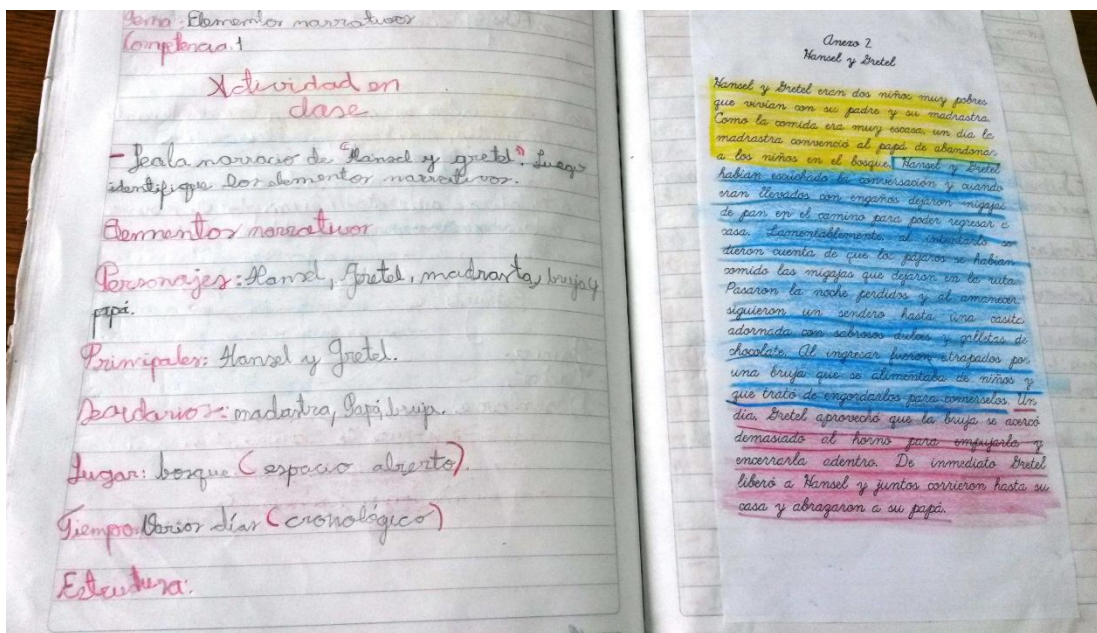 Tema: Elementos narrativos
Competencia.1
Actividad en
clase
- Lea la narracio de "Hansel y gretel". Luego
identifique los elementos narrativos.
Elementos narrativos
Personajes: Hansel, Gretel, madrasta, bruja y
papá.
Principales: Hansel y Gretel.
madastra, Papá, bruja.
Lugar: bosque (espacio abierto).
Tiempo: Varios días (cronológico)
Estructura:
Anexo 2
Hansel y Gretel
Hansel y Gretel eran dos niños muy pobres
que vivían con su padre y su madrastra.
Como la comida era muy escasa, un día la
madrastra convenció al papá de abandonar
a los niños en el bosque. Hansel y Gretel
habían escuchado la conversación y cuando
eran llevados con engaños dejaron migajas
de pan en el camino para poder regresar a
casa. Lamentablemente, al intentarlo se
dieron cuenta de que los pájaros se habían
comido las migajas que dejaron en la ruta.
Pasaron la noche perdidos y al amanecer
siguieron un sendero hasta una casita
adornada con sabrosos dulces y galletas de
chocolate. Al ingresar fueron atrapados por
una bruja que se alimentaba de niños y
que trató de engordarlos para comérselos. Un
día, Gretel aprovechó que la bruja se acercó
demasiado al horno para empujarla y
encerrarla adentro. De inmediato Gretel
liberó a Hansel y juntos corrieron hasta su
casa y abrazaron a su papá.